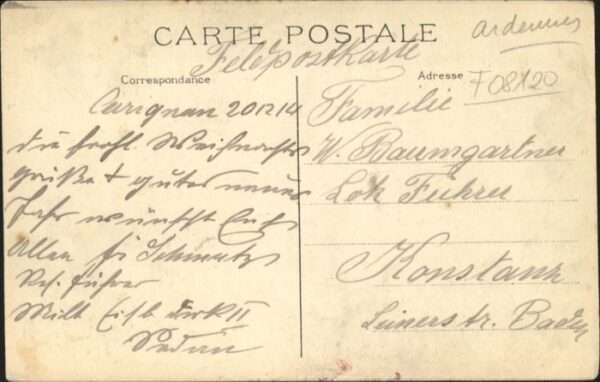 CARTE POSTALE
Feldpostkarte
Ardennes
Correspondance
Adresse
F 08120
Carignan 20 12 14
die frohl. Weihnachts
grüße + gutes neues
Jahr wünscht Euch
Allen Schmutz
Res. Führer
Milt. Eisb.
Sedan
Familie
W. Baumgartner
Lok Fuhrer
Konstanz
Baden